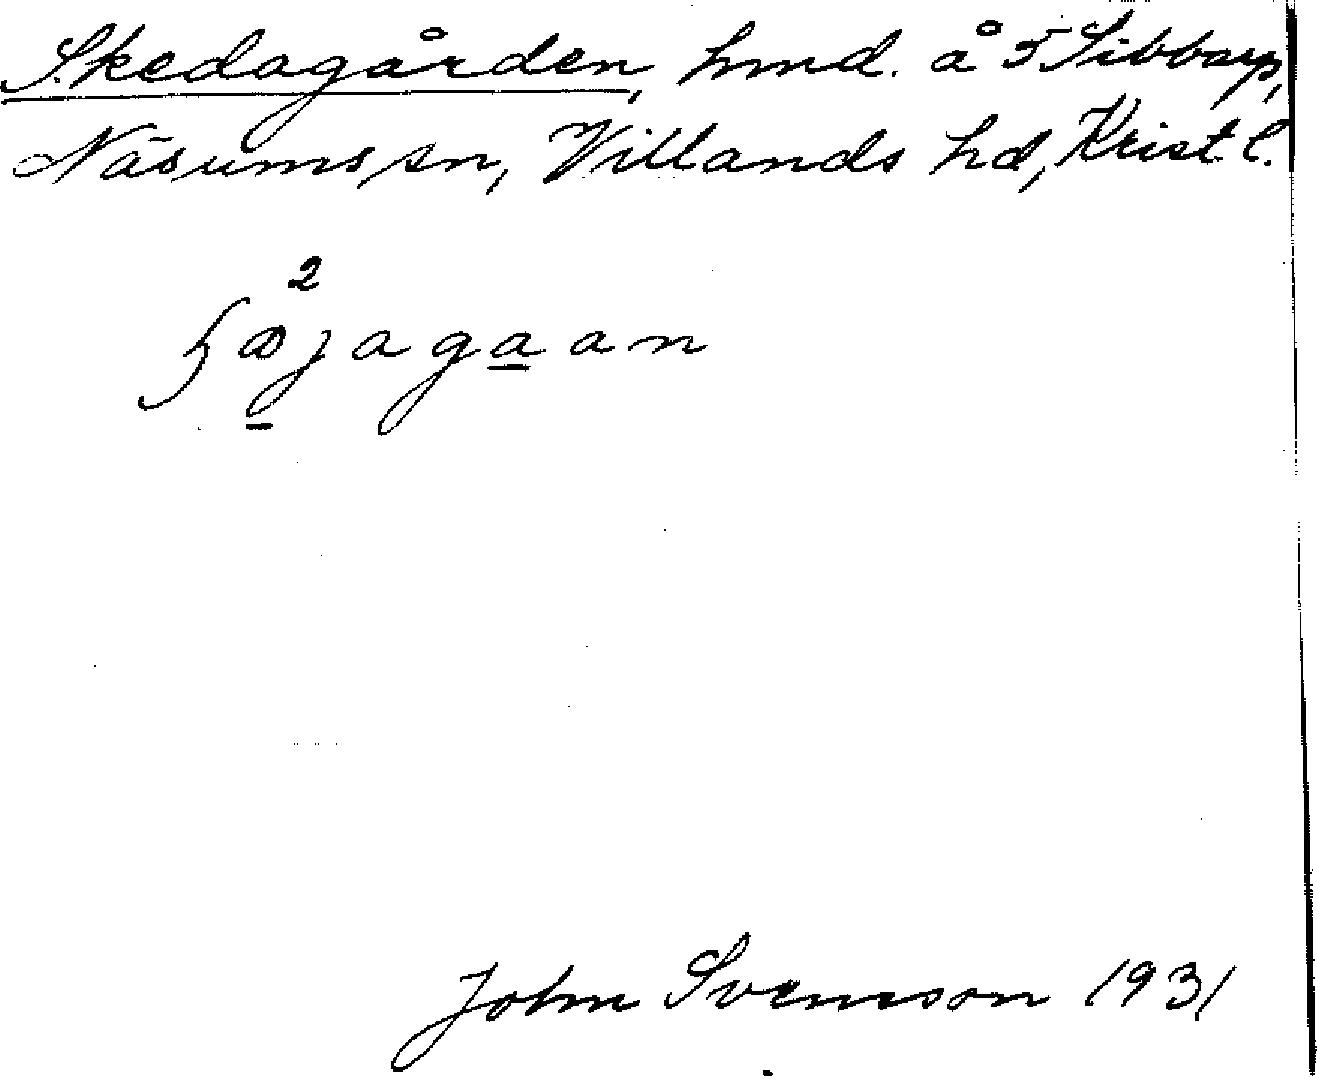 Skedagården, hmd. å 5 Sibbarp,
Näsums sn, Villands hd, Krist. l.
John Svensson 1931